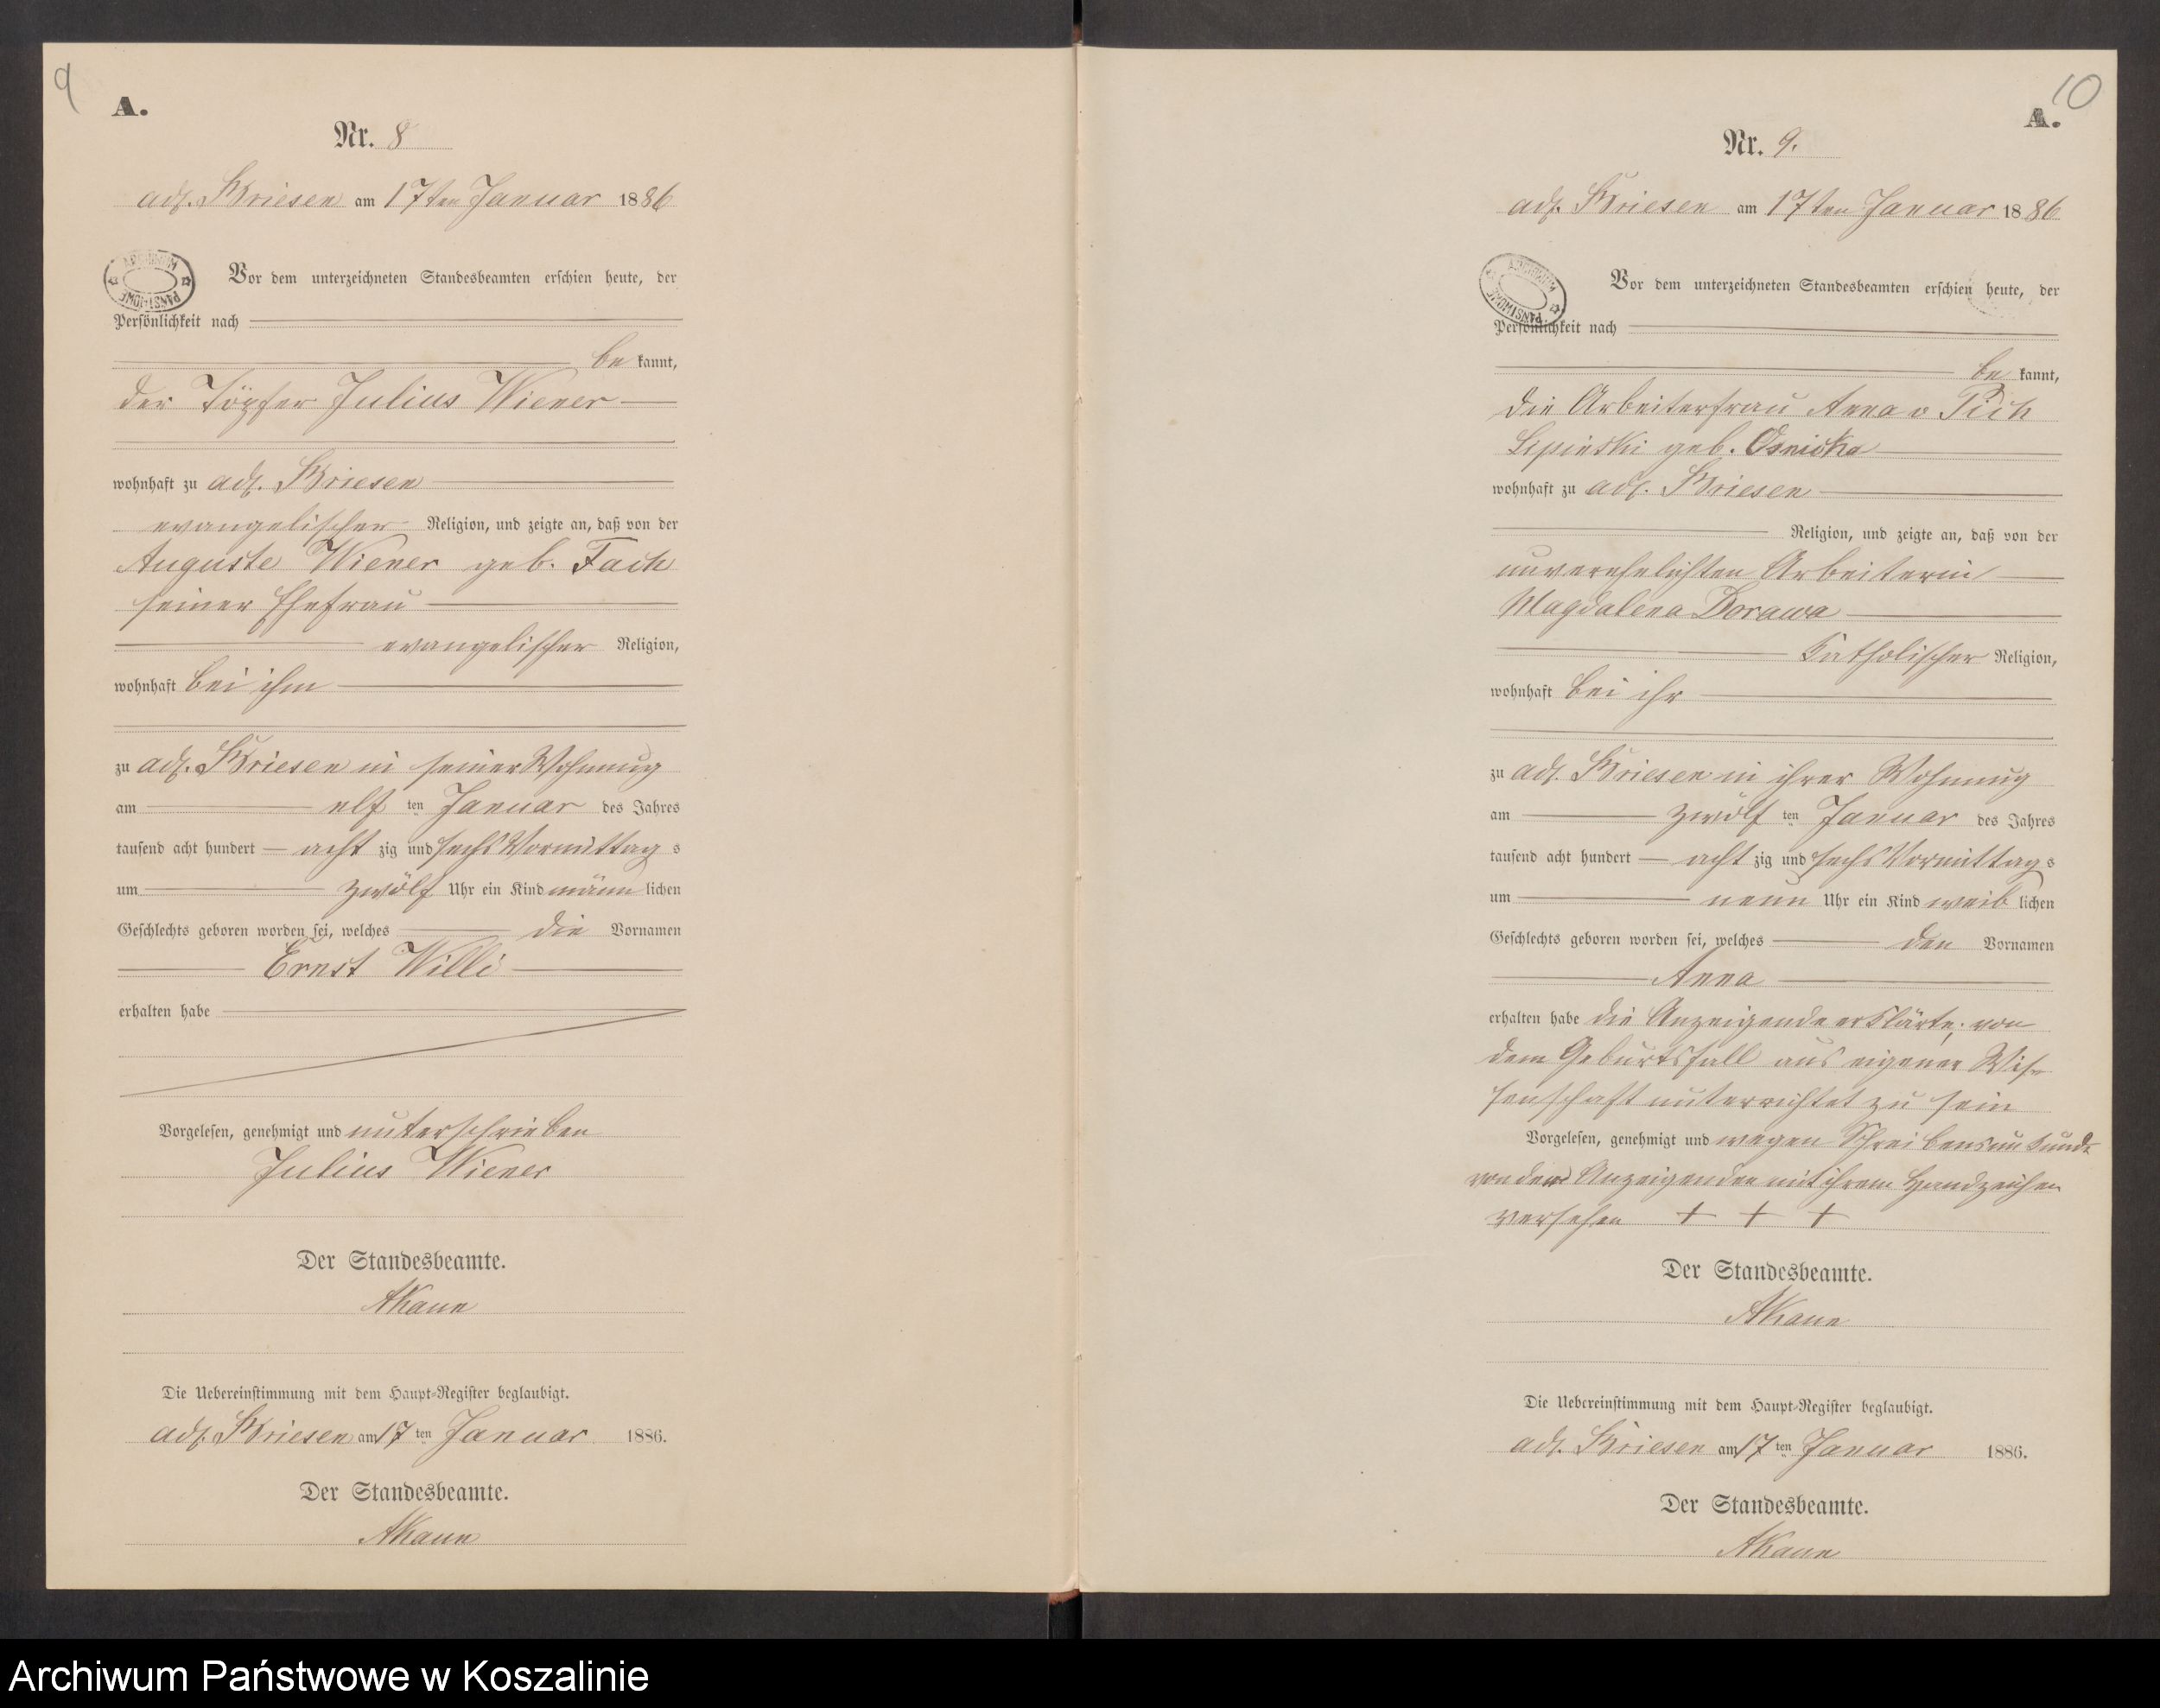 9
A.
Nr. 8
adl. Briesen am 17ten Januar 1886
ARCHIWUM PAŃSTWOWE
Vor dem unterzeichneten Standesbeamten erschien heute, der
Persönlichkeit nach
be kannt,
der Töpfer Julius Wiener
wohnhaft zu adl. Briesen
evangelischer Religion, und zeigte an, daß von der
Auguste Wiener geb. Fach
seiner Ehefrau
evangelischer Religion,
wohnhaft bei ihm
zu adl. Briesen in seiner Wohnung
am elf ten Januar des Jahres
tausend acht hundert acht zig und sechs Vormittag s
um zwölf Uhr ein Kind männ lichen
Geschlechts geboren worden sei, welches die Vornamen
Ernst Willi
erhalten habe
Vorgelesen, genehmigt und unterschrieben
Julius Wiener
Der Standesbeamte.
Die Uebereinstimmung mit dem Haupt-Register beglaubigt.
adl. Briesen am 17 ten Januar 1886.
Der Standesbeamte.
10
A.
Nr. 9.
adl. Briesen am 17ten Januar 1886
ARCHIWUM PAŃSTWOWE
Vor dem unterzeichneten Standesbeamten erschien heute, der
Persönlichkeit nach
be kannt,
die Arbeiterfrau Anna v
Lipinski geb.
wohnhaft zu adl. Briesen
Religion, und zeigte an, daß von der
unverehelichten Arbeiterin
Magdalena Dorawa
katholischer Religion,
wohnhaft bei ihr
zu adl. Briesen in ihrer Wohnung
am zwölf ten Januar des Jahres
tausend acht hundert acht zig und sechs Vormittag s
um neun Uhr ein Kind weib lichen
Geschlechts geboren worden sei, welches den Vornamen
Anna
erhalten habe die Anzeigende erklärte, von
dem Geburtsfall aus eigener Wis-
senschaft unterrichtet zu sein
Vorgelesen, genehmigt und wegen Schreibensunkunde
von der Anzeigenden mit ihrem Handzeichen
versehen + + +
Der Standesbeamte.
Die Uebereinstimmung mit dem Haupt-Register beglaubigt.
adl. Briesen am 17 ten Januar 1886.
Der Standesbeamte.
Archiwum Państwowe w Koszalinie